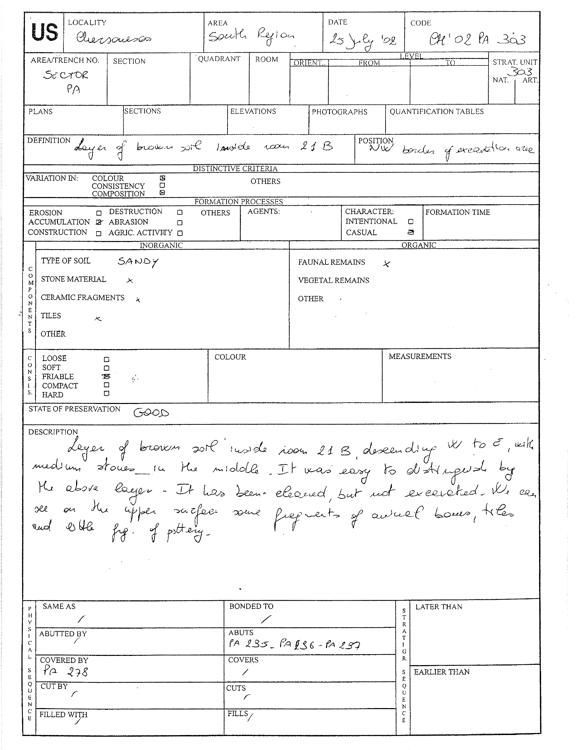 US
LOCALITY
Chersonesos
AREA
South Region
DATE
25 July '02
CODE
CH '02 PA 303
AREA/TRENCH NO.
SECTOR
PA
SECTION
QUADRANT
ROOM
LEVEL
ORIENT.
FROM
TO
STRAT. UNIT
303
NAT.
ART.
PLANS
SECTIONS
ELEVATIONS
PHOTOGRAPHS
QUANTIFICATION TABLES
DEFINITION Layer of brown soil inside room 21 B
POSITION NW border of excavation area
DISTINCTIVE CRITERIA
VARIATION IN: COLOUR
CONSISTENCY
COMPOSITION
OTHERS
FORMATION PROCESSES
EROSION
ACCUMULATION
CONSTRUCTION
DESTRUCTION
ABRASION
AGRIC. ACTIVITY
OTHERS
AGENTS:
CHARACTER:
INTENTIONAL
CASUAL
FORMATION TIME
COMPONENTS
INORGANIC
TYPE OF SOIL SANDY
STONE MATERIAL x
CERAMIC FRAGMENTS x
TILES x
OTHER
ORGANIC
FAUNAL REMAINS x
VEGETAL REMAINS
OTHER
CONSIS.
LOOSE
SOFT
FRIABLE
COMPACT
HARD
COLOUR
MEASUREMENTS
STATE OF PRESERVATION GOOD
DESCRIPTION
Layer of brown soil inside room 21 B, descending W to E, with
medium stones in the middle. It was easy to distinguish by
the above layer. It has been cleaned, but not excavated. We can
see on the upper surface some fragments of animal bones, tiles
and little frg. of pottery.
PHYSICAL SEQUENCE
SAME AS
/
BONDED TO
/
ABUTTED BY
/
ABUTS
PA 235 - PA 236 - PA 237
COVERED BY
PA 278
COVERS
/
CUT BY
/
CUTS
/
FILLED WITH
/
FILLS /
STRATIGR. SEQUENCE
LATER THAN
EARLIER THAN